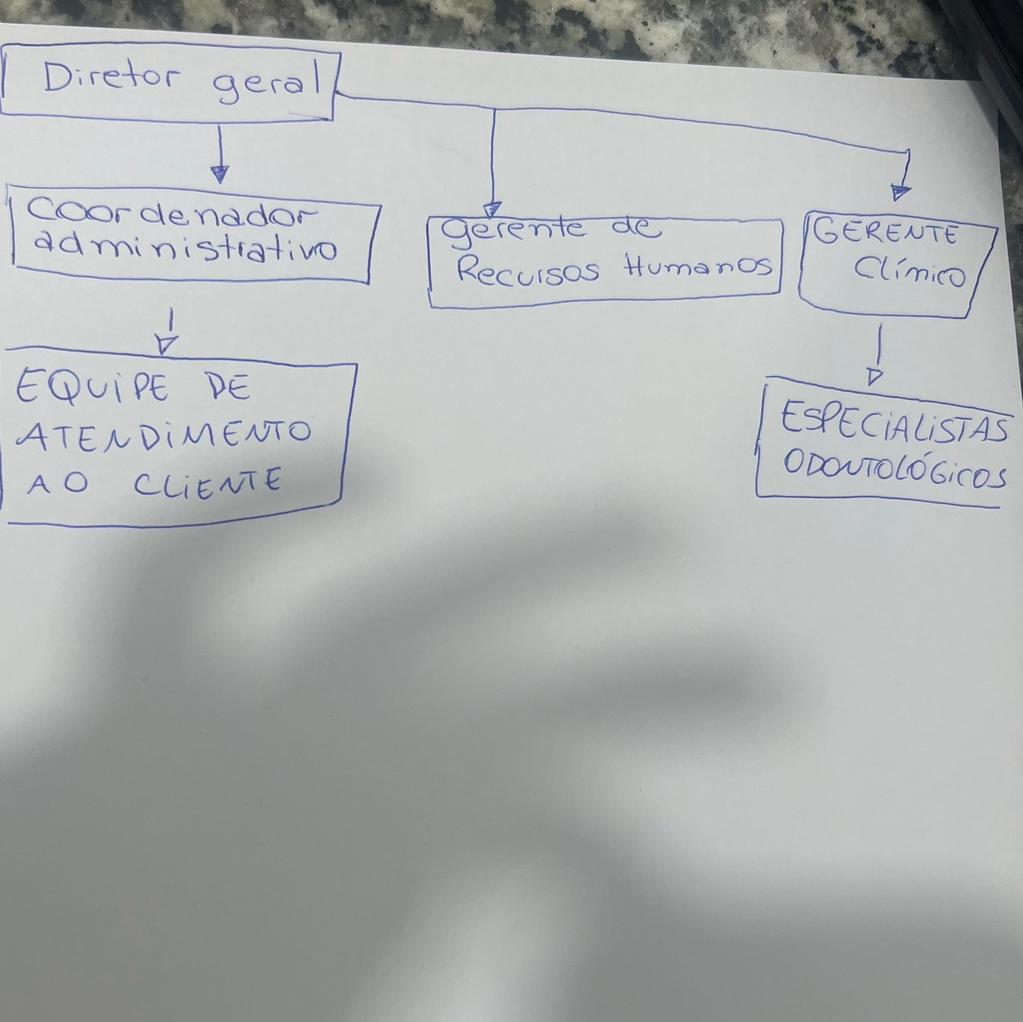 Diretor geral
Coordenador
administrativo
gerente de
Recursos Humanos
GERENTE
Clínico
EQUIPE DE
ATENDIMENTO
AO CLIENTE
ESPECIALISTAS
ODONTOLÓGICOS